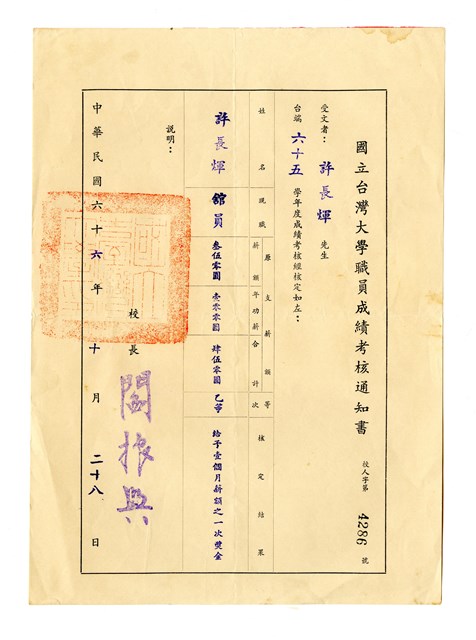 國立台灣大學職員成績考核通知書
校人字第 4286 號
受文者：許長煇 先生
台端六十五學年度成績考核經核定如左：
姓名
現職
原支薪額
薪額
年功薪
合計
等次
核定結果
許長煇
館員
叁伍零圓
壹零零圓
肆伍零圓
乙等
給予壹個月薪額之一次獎金
說明：
校長 閻振興
中華民國六十六年十月二十八日